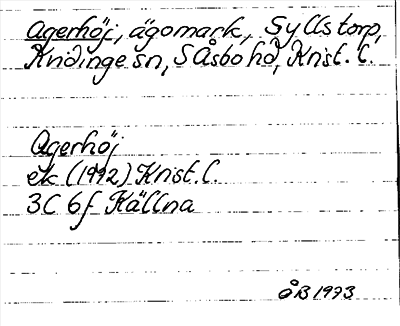 Agerhöj, ägomark, Syllstorp,
Knidinge sn, S Åsbo hd, Krist. l.
Agerhöj
ek (1992) Krist. l.
3C 6f Källna
ÅB 1993